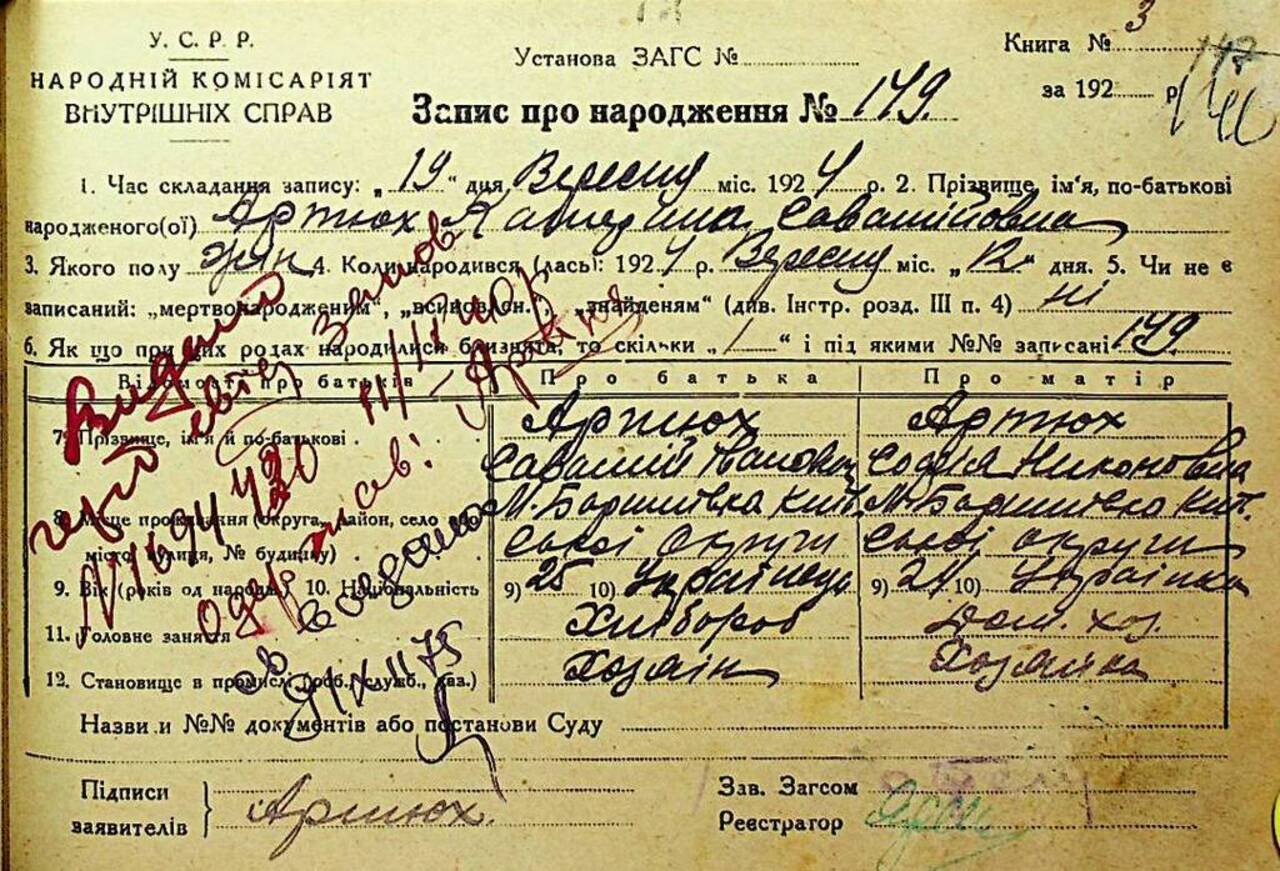 У. С. Р. Р.
НАРОДНІЙ КОМІСАРІЯТ
ВНУТРІШНІХ СПРАВ
Установа ЗАГС №
Книга № 3
за 192 р.
147
146
Запис про народження № 149.
1. Час складання запису: „19“ дня Вересня міс. 1924 р. 2. Прізвище, ім'я, по-батькові
народженого(ої) Артюх Саватійовна
3. Якого полу жін 4. Коли народився (лась): 1924 р. Вересня міс. „12“ дня. 5. Чи не є
записаний: „мертвонародженим“, „всиновлен.“, „знайденям“ (див. Інстр. розд. III п. 4) ні
6. Як що при цих родах народилися близнята, то скільки „1“ і під якими №№ записані 149.
Відомості про батьків Про батька Про матір
7. Прізвище, ім'я й по-батькові Артюх Артюх
Саватій Софія Никоновна
8. Місце проживання (округа, район, село або М. Баришівка Київ. М. Баришівка Київ.
місто, вулиця, № будинку) Округи округи
9. Вік (років од народж.) 10. Національність 9) 25 10) Українець 9) 24 10) Українка
11. Головне заняття Хлібороб Дом. хоз.
12. Становище в промислі (роб., служб., хаз.) Хозяін Хозяйка
Видано
№ 1694420
11/IX 40 р.
9/IX 75
Назви и №№ документів або постанови Суду
Підписи
заявителів
Артюх.
Зав. Загсом
Реєстратор